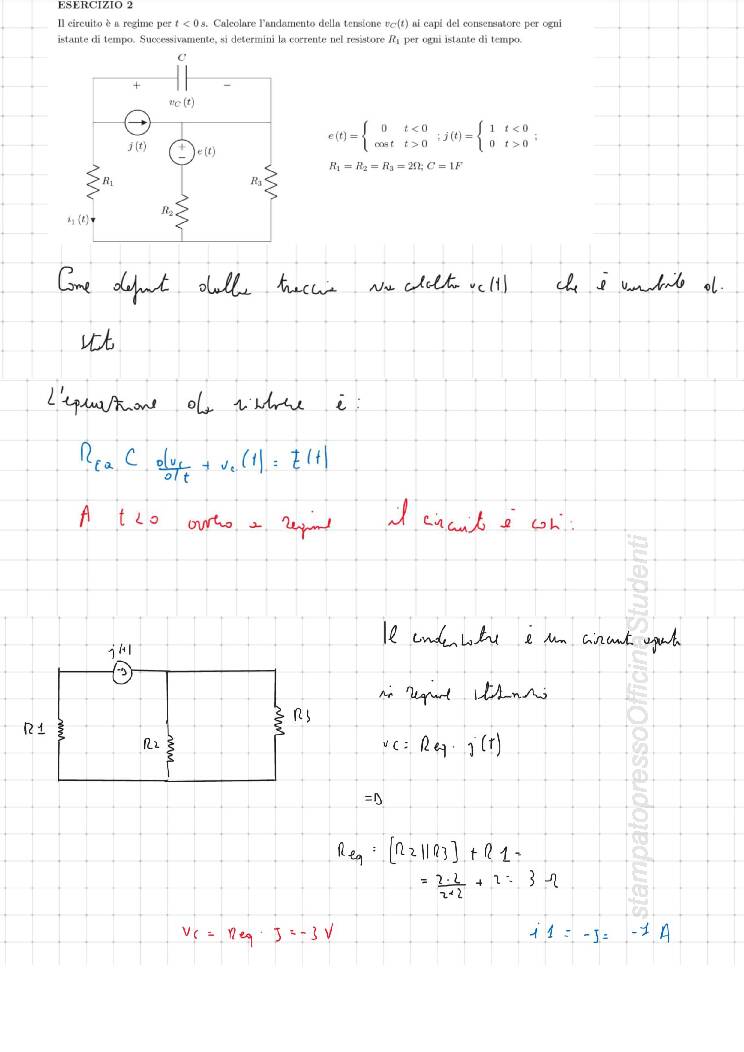 ESERCIZIO 2
Il circuito è a regime per t < 0 s. Calcolare l'andamento della tensione v_C(t) ai capi del consensatore per ogni
istante di tempo. Successivamente, si determini la corrente nel resistore R_1 per ogni istante di tempo.
C
+ −
v_C (t)
j(t)
+
−
e(t)
R_1
R_2
R_3
i_1 (t)
e(t) = { 0 t < 0 ; j(t) = { 1 t < 0 ;
cos t t > 0 0 t > 0
R_1 = R_2 = R_3 = 2Ω; C = 1F
Come dalla traccia v_c(t) che è d.
L'equazione da risolvere è:
R_EQ C dv_c/dt + v_c(t) = E(t)
A t<0 ovvero a regime il circuito è così:
j(t)
R1
R2
R3
Il condensatore è un circuito aperto
in regime stazionario
v_c = Req · j(t)
=D
Req = [R2||R3] + R1 =
= 2·2/2+2 + 2 = 3 Ω
v_c = Req · J = -3 V
i1 = -J = -1 A
stampatopressoOfficinaStudenti